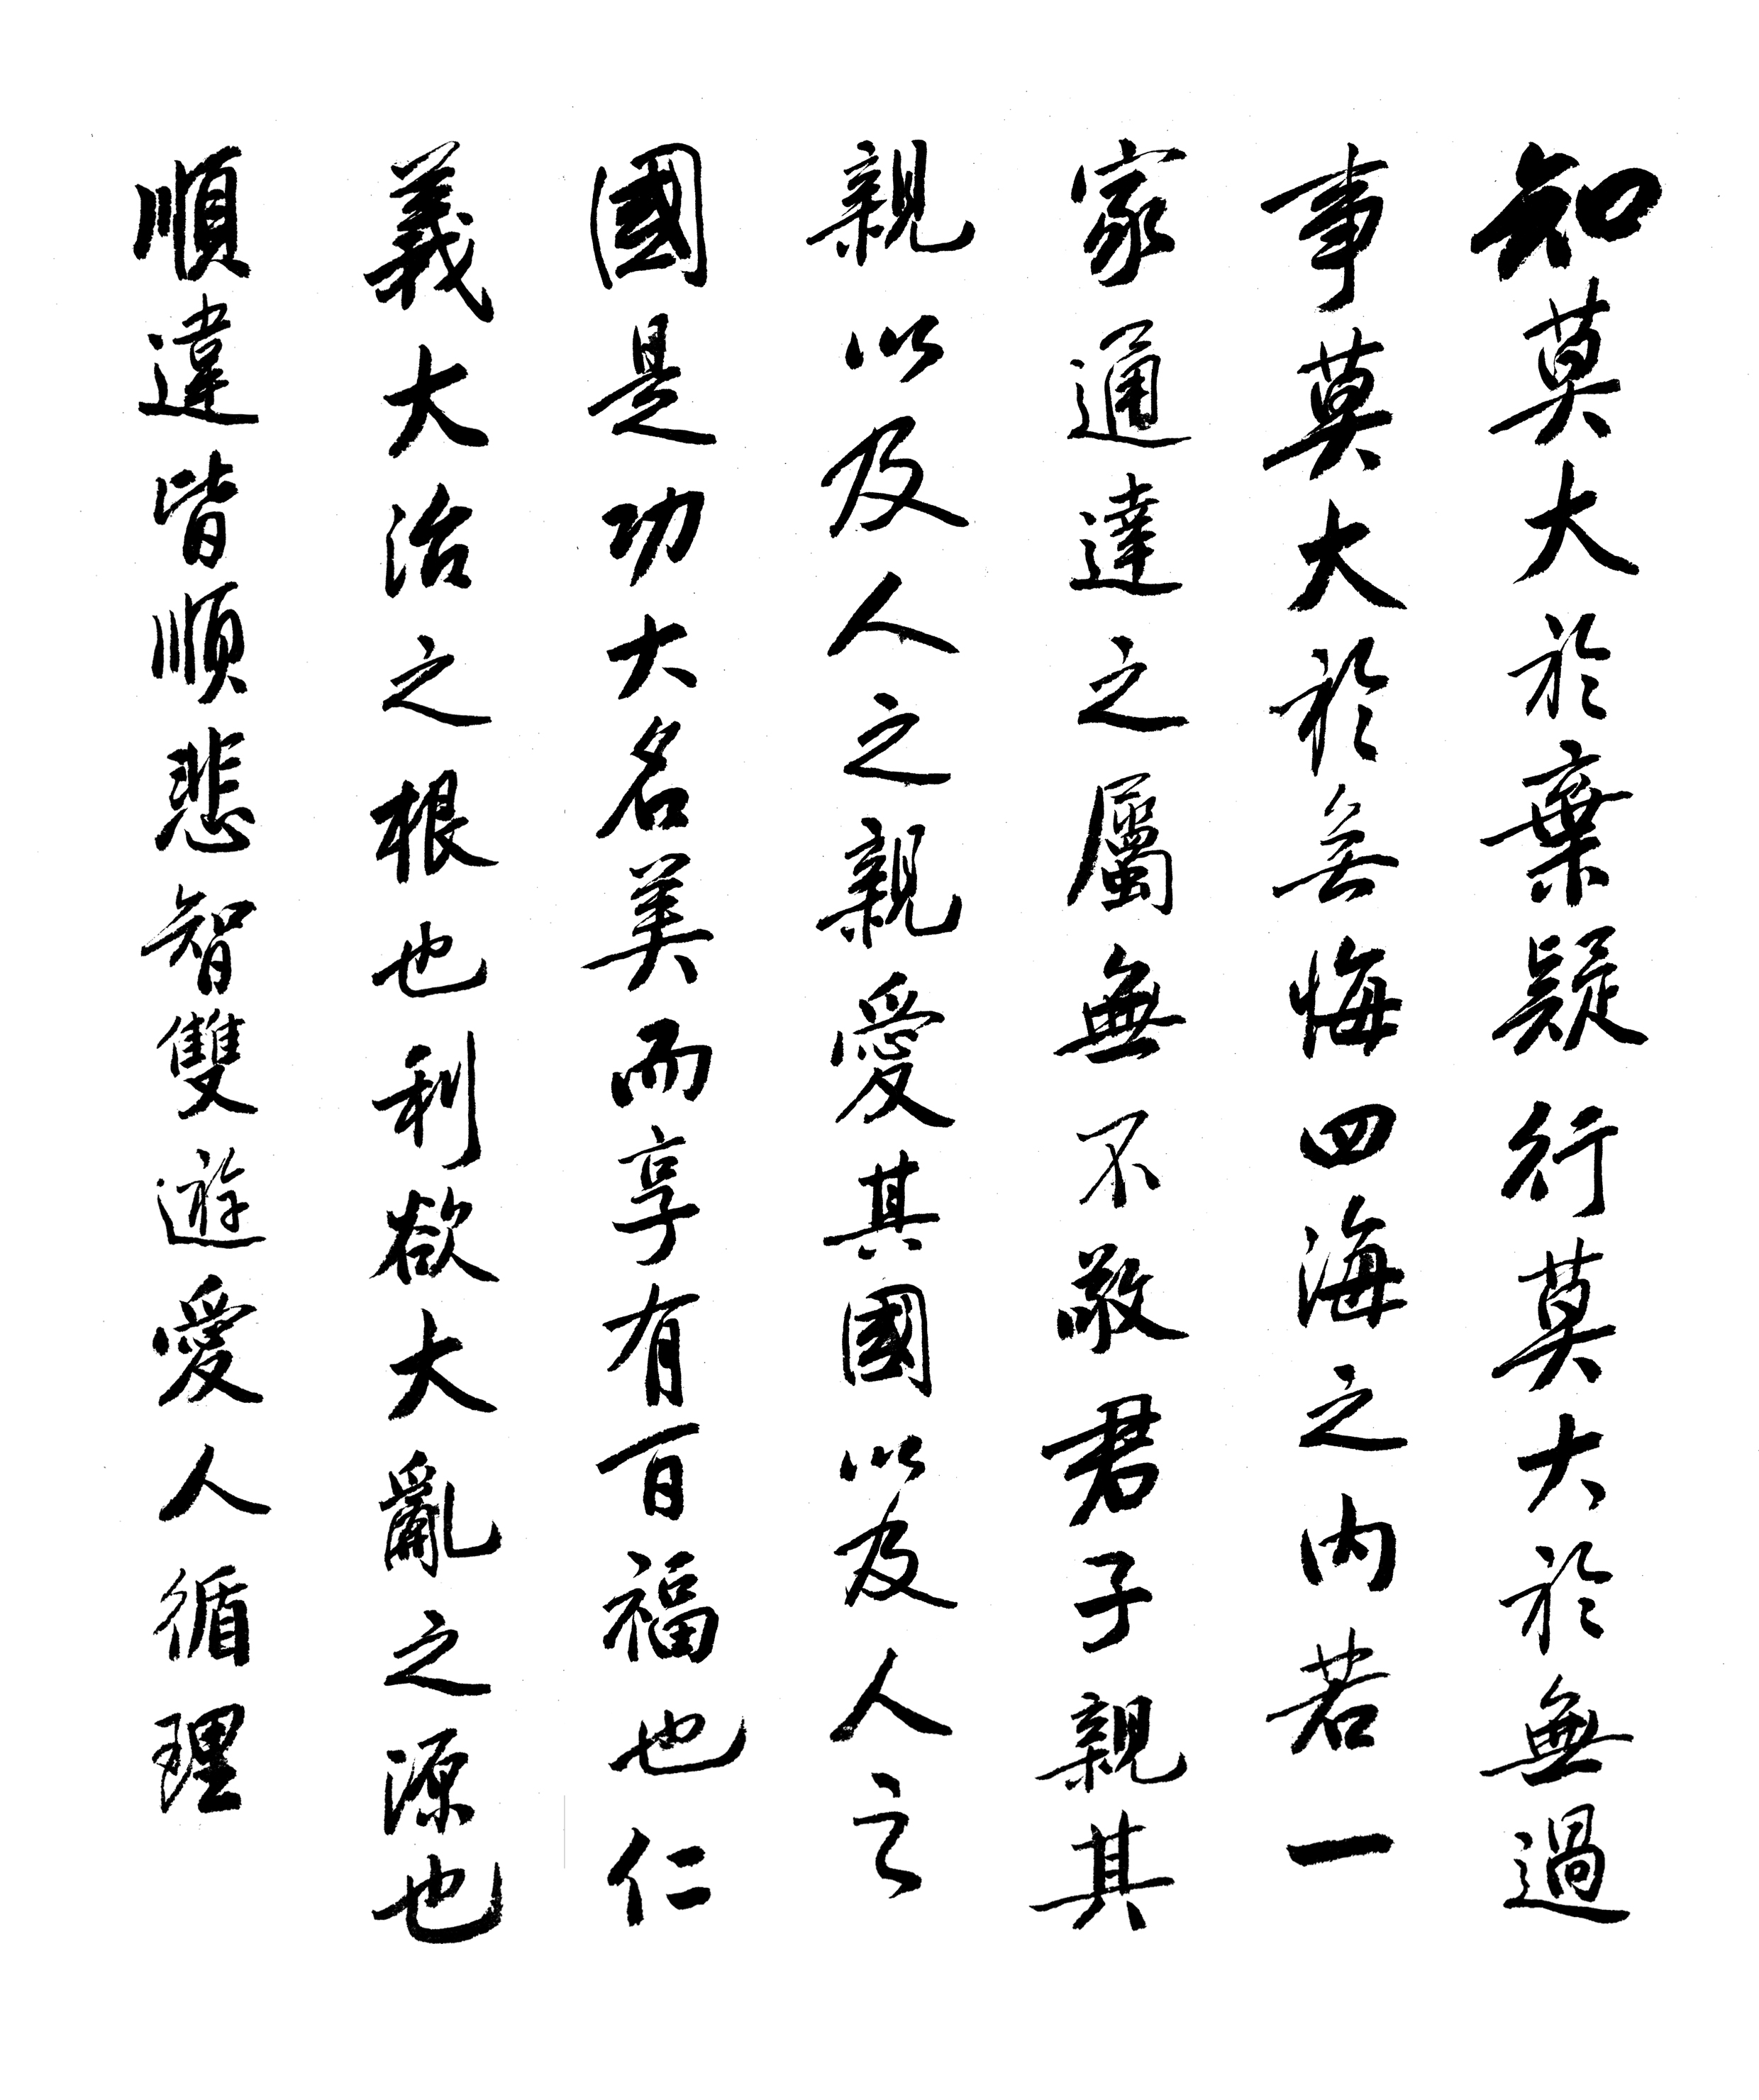 知莫大於棄疑行莫大於無過
事莫大於無悔四海之内若一
家通達之屬無不敬君子親其
親以及人之親愛其國以及人之
國是功大名美而享有百福也仁
義大治之根也利欲大亂之源也
順違皆順悲智雙遊愛人循理